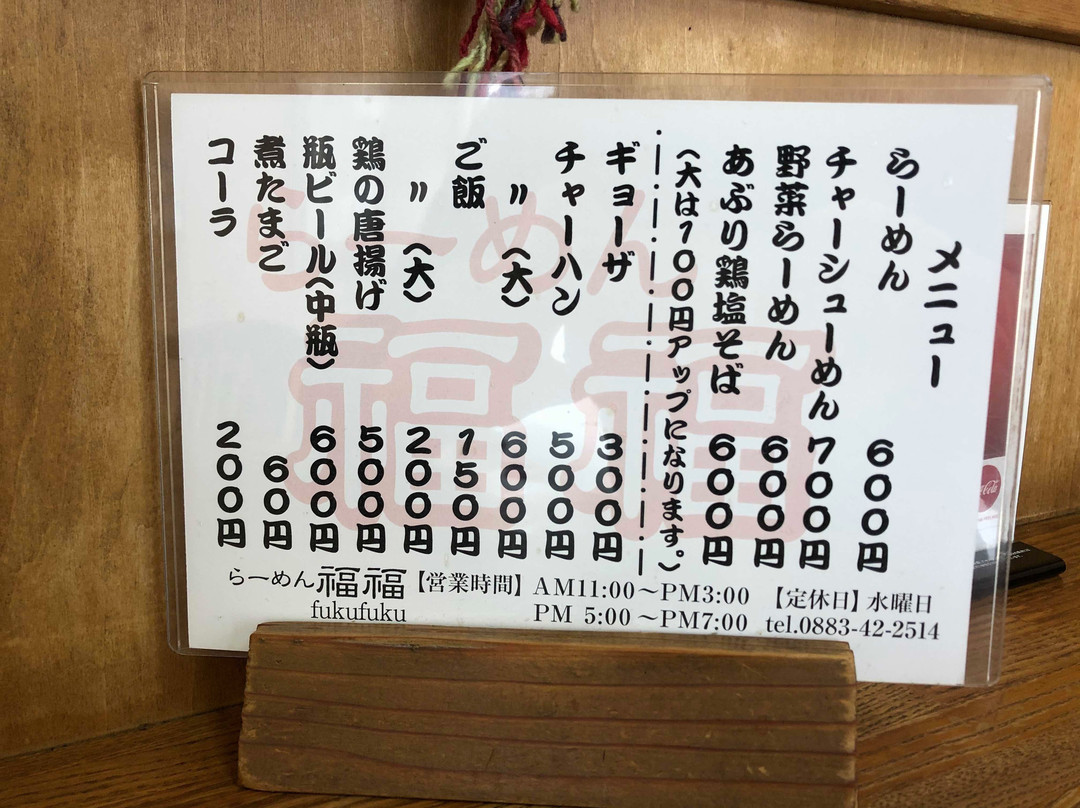 メニュー
らーめん 600円
チャーシューめん 700円
野菜らーめん 600円
あぶり鶏塩そば 600円
(大は100円アップになります。)
ギョーザ 300円
チャーハン 500円
〃 (大) 600円
ご飯 150円
〃 (大) 200円
鶏の唐揚げ 500円
瓶ビール(中瓶) 600円
煮たまご 60円
コーラ 200円
らーめん 福福
fukufuku
【営業時間】 AM11:00~PM3:00
PM 5:00~PM7:00
【定休日】水曜日
tel.0883-42-2514
らーめん
福福
Coca-Cola